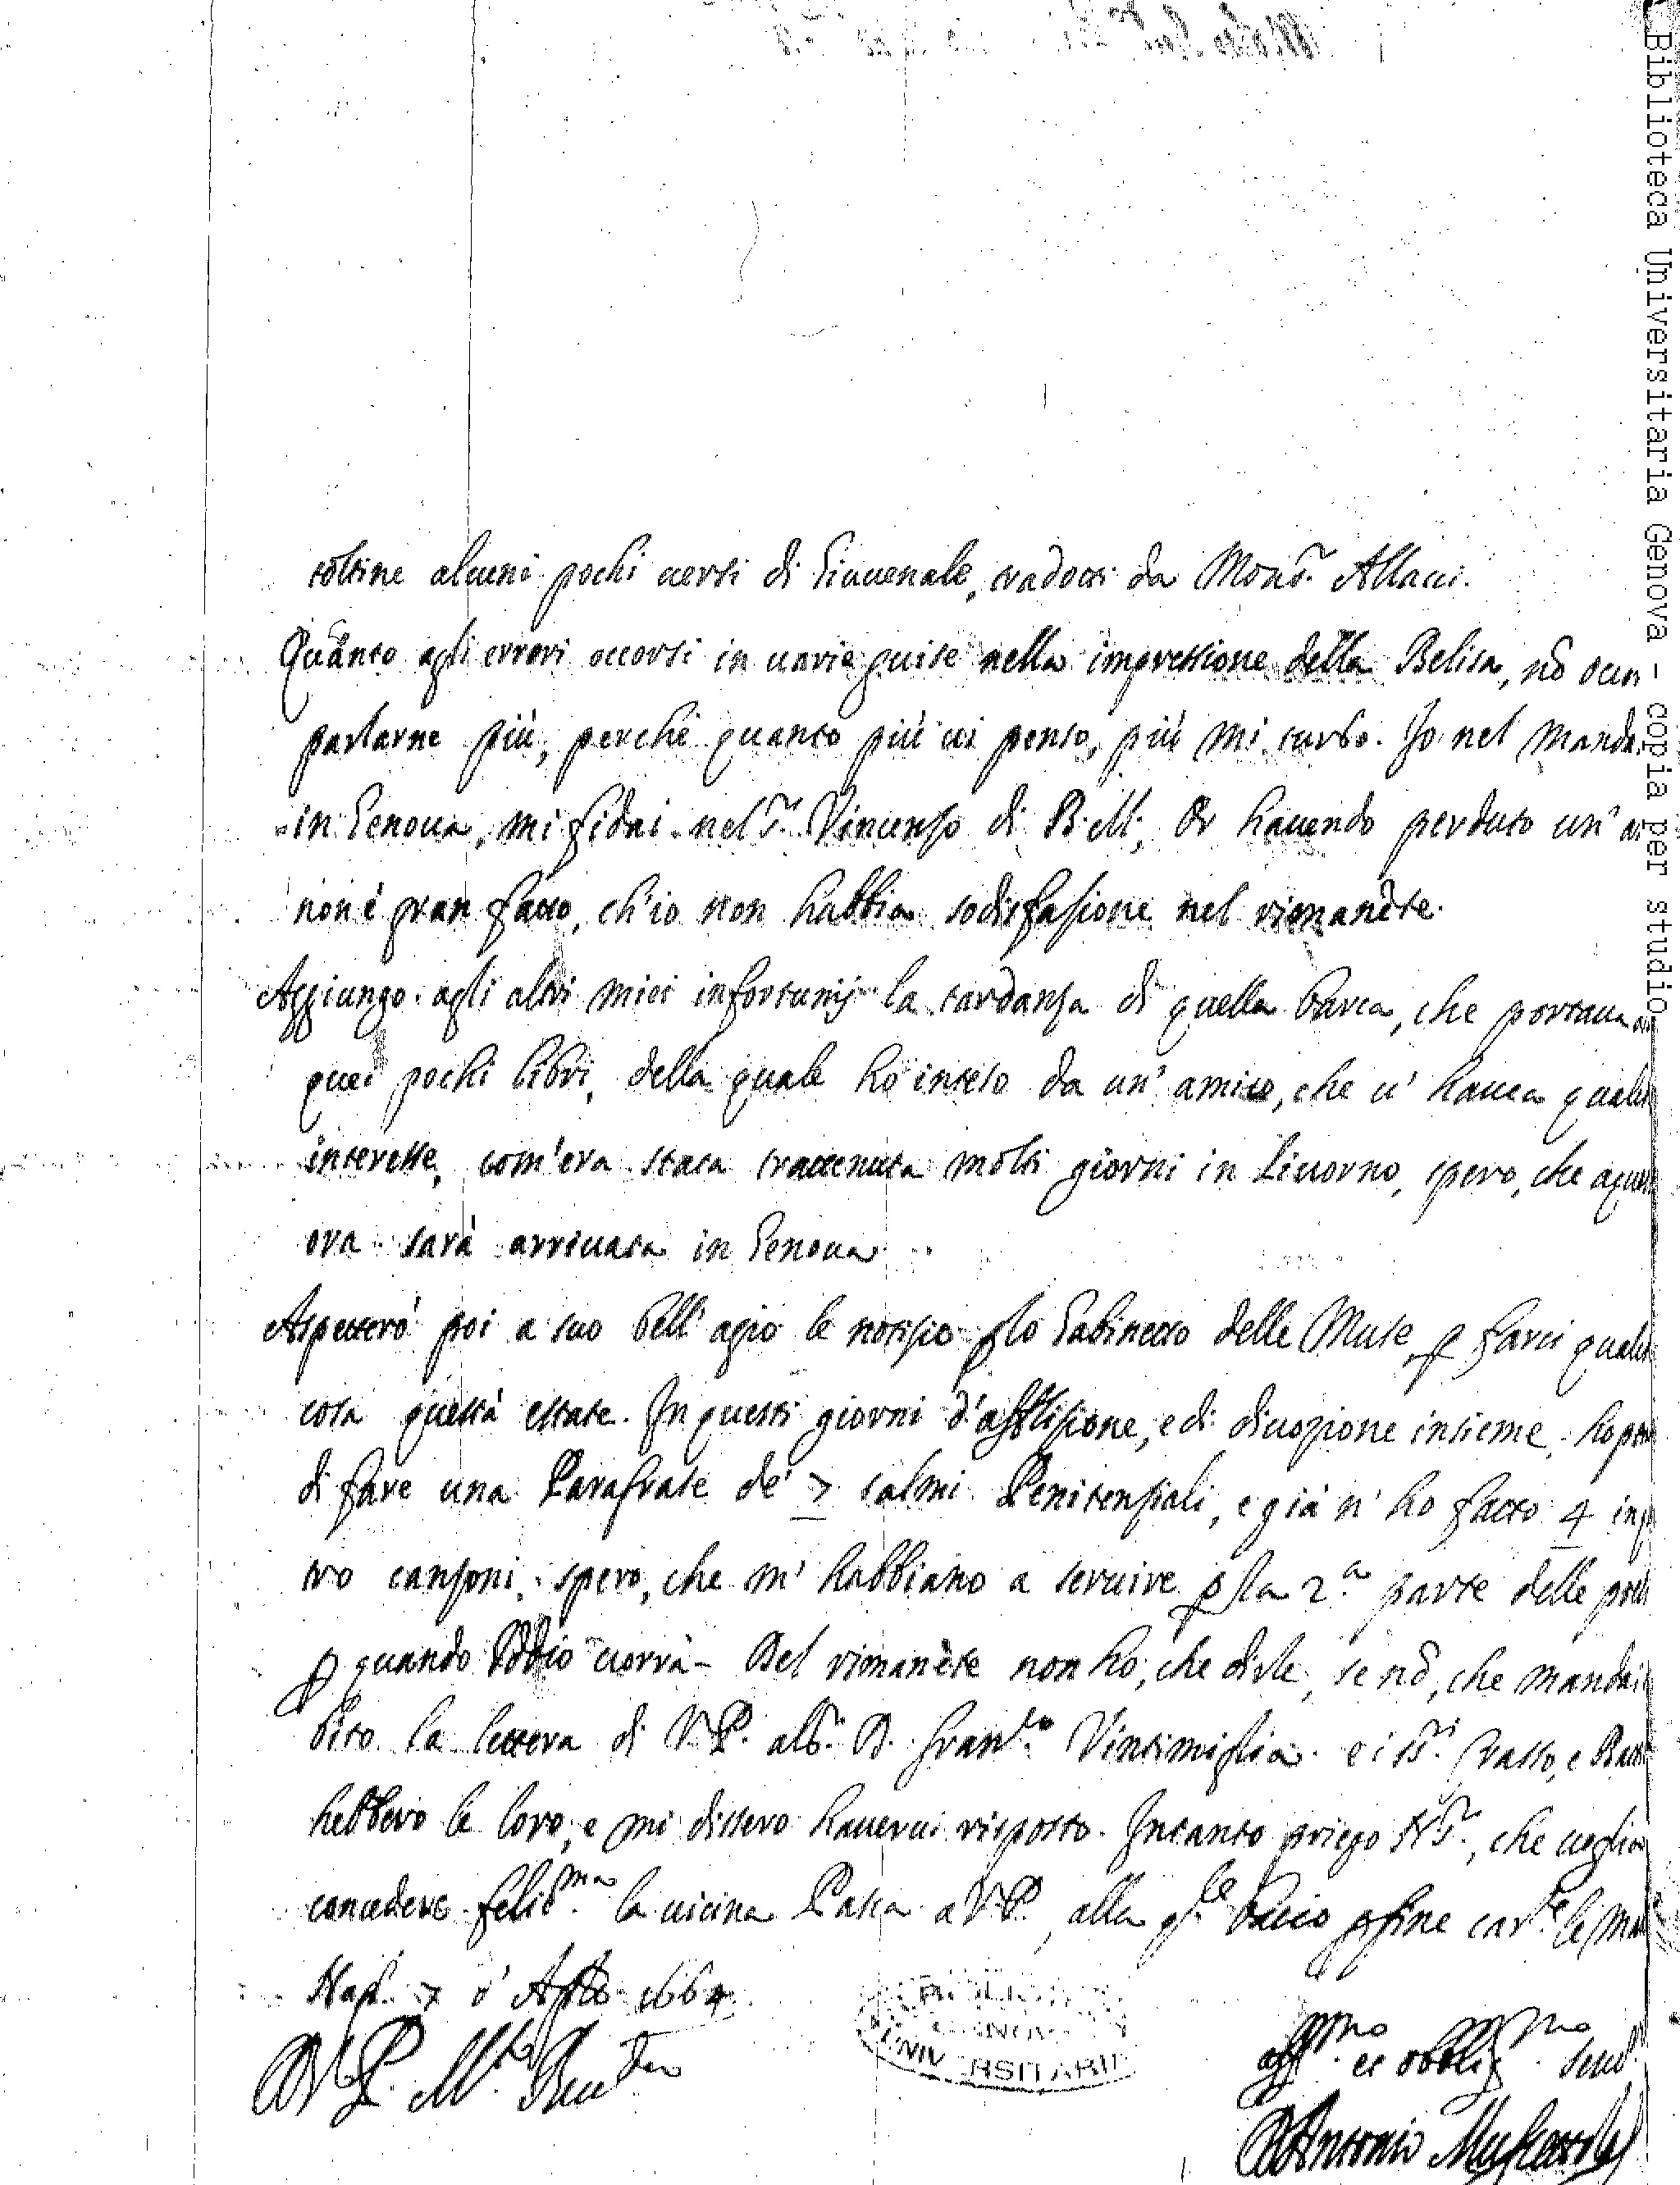 toltine alcuni pochi versi di Giuuenale, tradotti da Mons.r Allacci.
Quãnto agli errori occorsi in uarie guise nella impressione della Belisa, nõ
parlarne più, perche quanto più ui penso, più mi turbo. Io nel
in Genoua, mi fidai nel S.r Vincenzo di B.M., Or hauendo perduto un'
non è gran fatto, ch'io non habbia sodisfazione nel rimanẽte.
Aggiungo agli altri miei infortunij la tardanza di quella barca, che portaua
quei pochi libri, della quale ho inteso da un' amico, che u' hauea
interesse, com'era stata trattenuta molti giorni in Liuorno, spero, che
ora sarà arriuata in Genoua
Aspetterò poi a suo bell'agio le notizie p lo Gabinetto delle Muse, p farci
cosa questa estate. In questi giorni d'afflizione, e di diuozione insieme,
di fare una Parafrase de' 7 salmi Penitenziali, e già n' ho fatto 4
tro canzoni. spero, che m' habbiano a seruire p la 2.a parte delle
p quando Iddio uorrà - Del rimanẽte non ho, che dirle, se nõ, che mandai
bito la lettera di V.P. al S.r D. Fran.co Vintimiglia. e i SS.ri
hebbero le loro, e mi dissero hauerui risposto. Intanto priego N.S.r, che uoglia
concedere felic.ma la uicina Pasca a V.P., alla q.le bacio p fine car.te le
Nap. 7 d' Aple 1664
D V.P. M.to Reu.da
aff.mo et obblig.mo seru.
D Antonio Muscettola
Biblioteca Universitaria Genova - copia per studio
UNIVERSITARIA